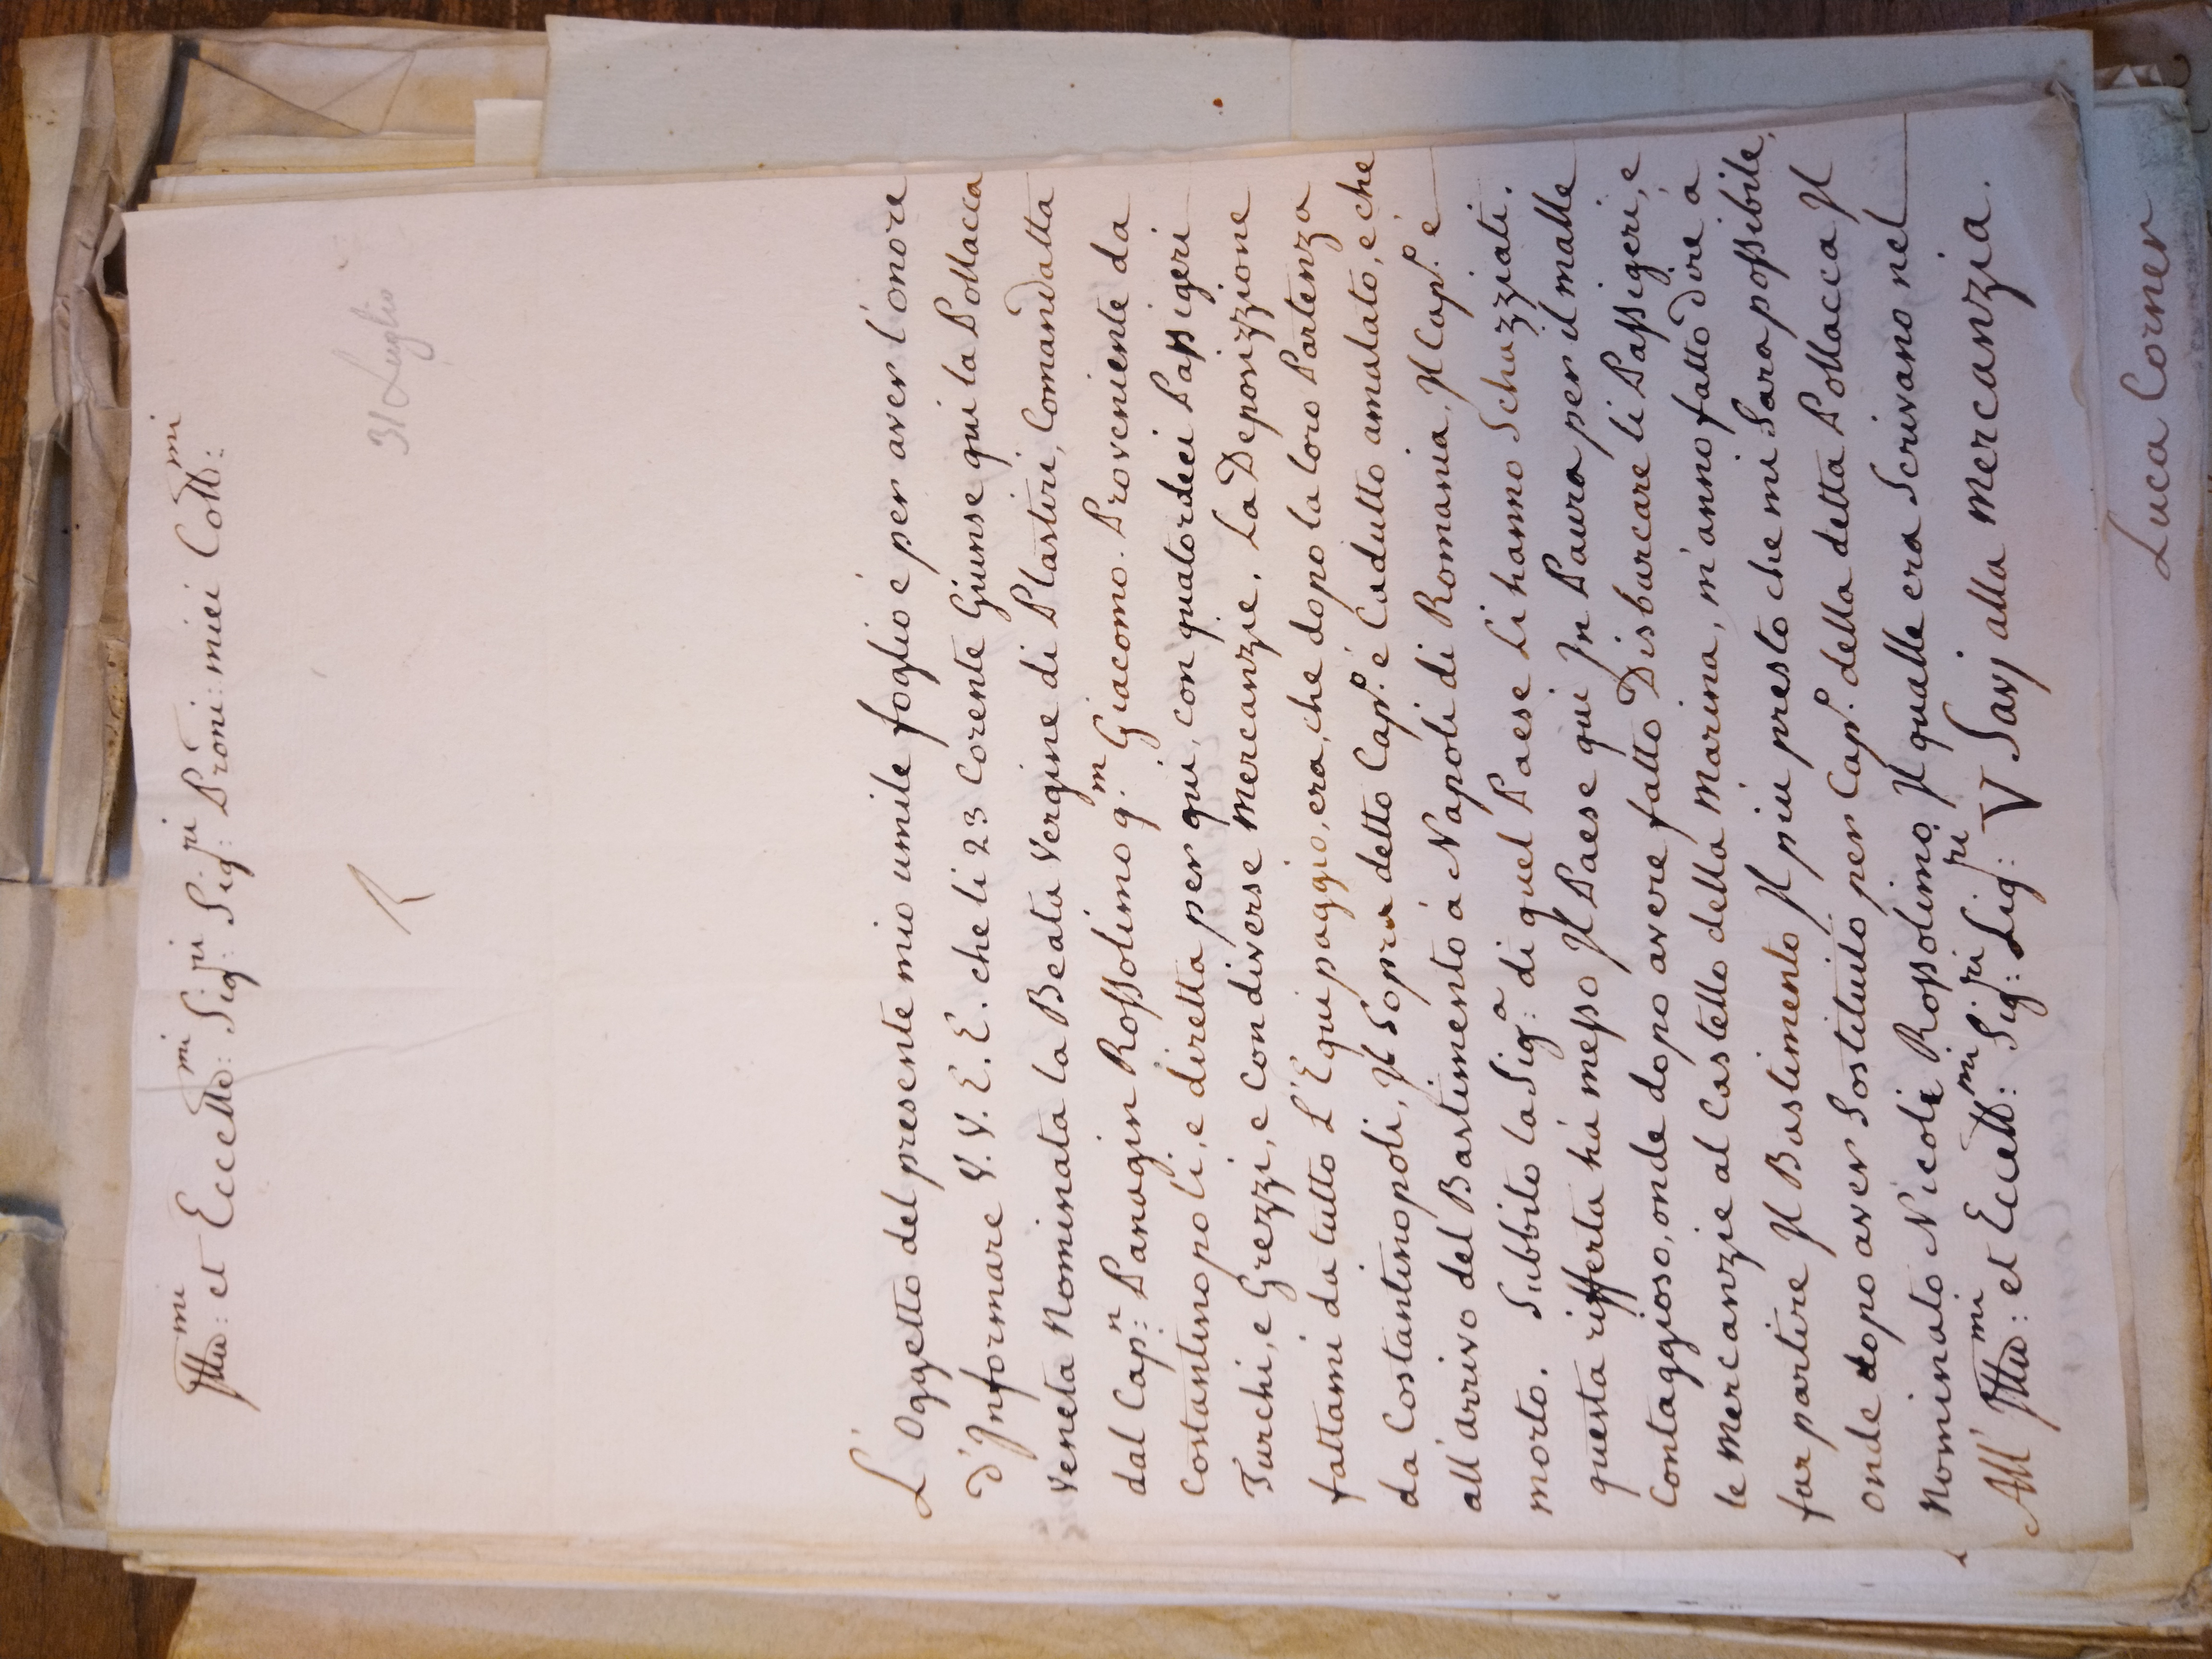 Illu:mi et Eccell:mi Sig:ri Sig:ri Proni: miei Coll:mi
31 Luglio
R
L'Oggetto del presente mio umile foglio é per aver l'onore
d'Informare V.V.E.E. che li 23 Corente Giunse qui la Pollacca
Veneta Nominata la Beata Vergine di Plastiri, Comandatta
dal Cap:n Panagin Rossolimo q.m Giacomo. Proveniente da
Costantinopoli, e diretta per qui, con quatordeci Passigeri
Turchi, e Grezzi, e con diverse Mercanzie. La Deposizzione
fattami da tutto L'Equipaggio, era, che dopo la loro Partenza
da Costantinopoli, Il Sopra detto Cap.o é Cadutto amalato, e che
all'arrivo del Bastimento á Napoli di Romania, Il Cap.o é
morto. Subbito la Sig:a di quel Paese Li hanno Schazziati.
questa rifferta há messo Il Paese qui In Paura per il malle
Contaggioso, onde dopo avere fatto Disbarcare li Passigeri, e
le Mercanzie al Castello della Marina, m'anno fatto dire á
far partire Il Bastimento Il piu presto che mi Sara possibile,
onde dopo aver Sostituito per Cap.o della detta Pollacca Il
Nominato Nicolé Rossolimo Il qualle era Scrivano nel
All' Illu:mi et Eccell:mi Sig:ri Sig:ri V Savj alla Mercanzia.
Luca Corner